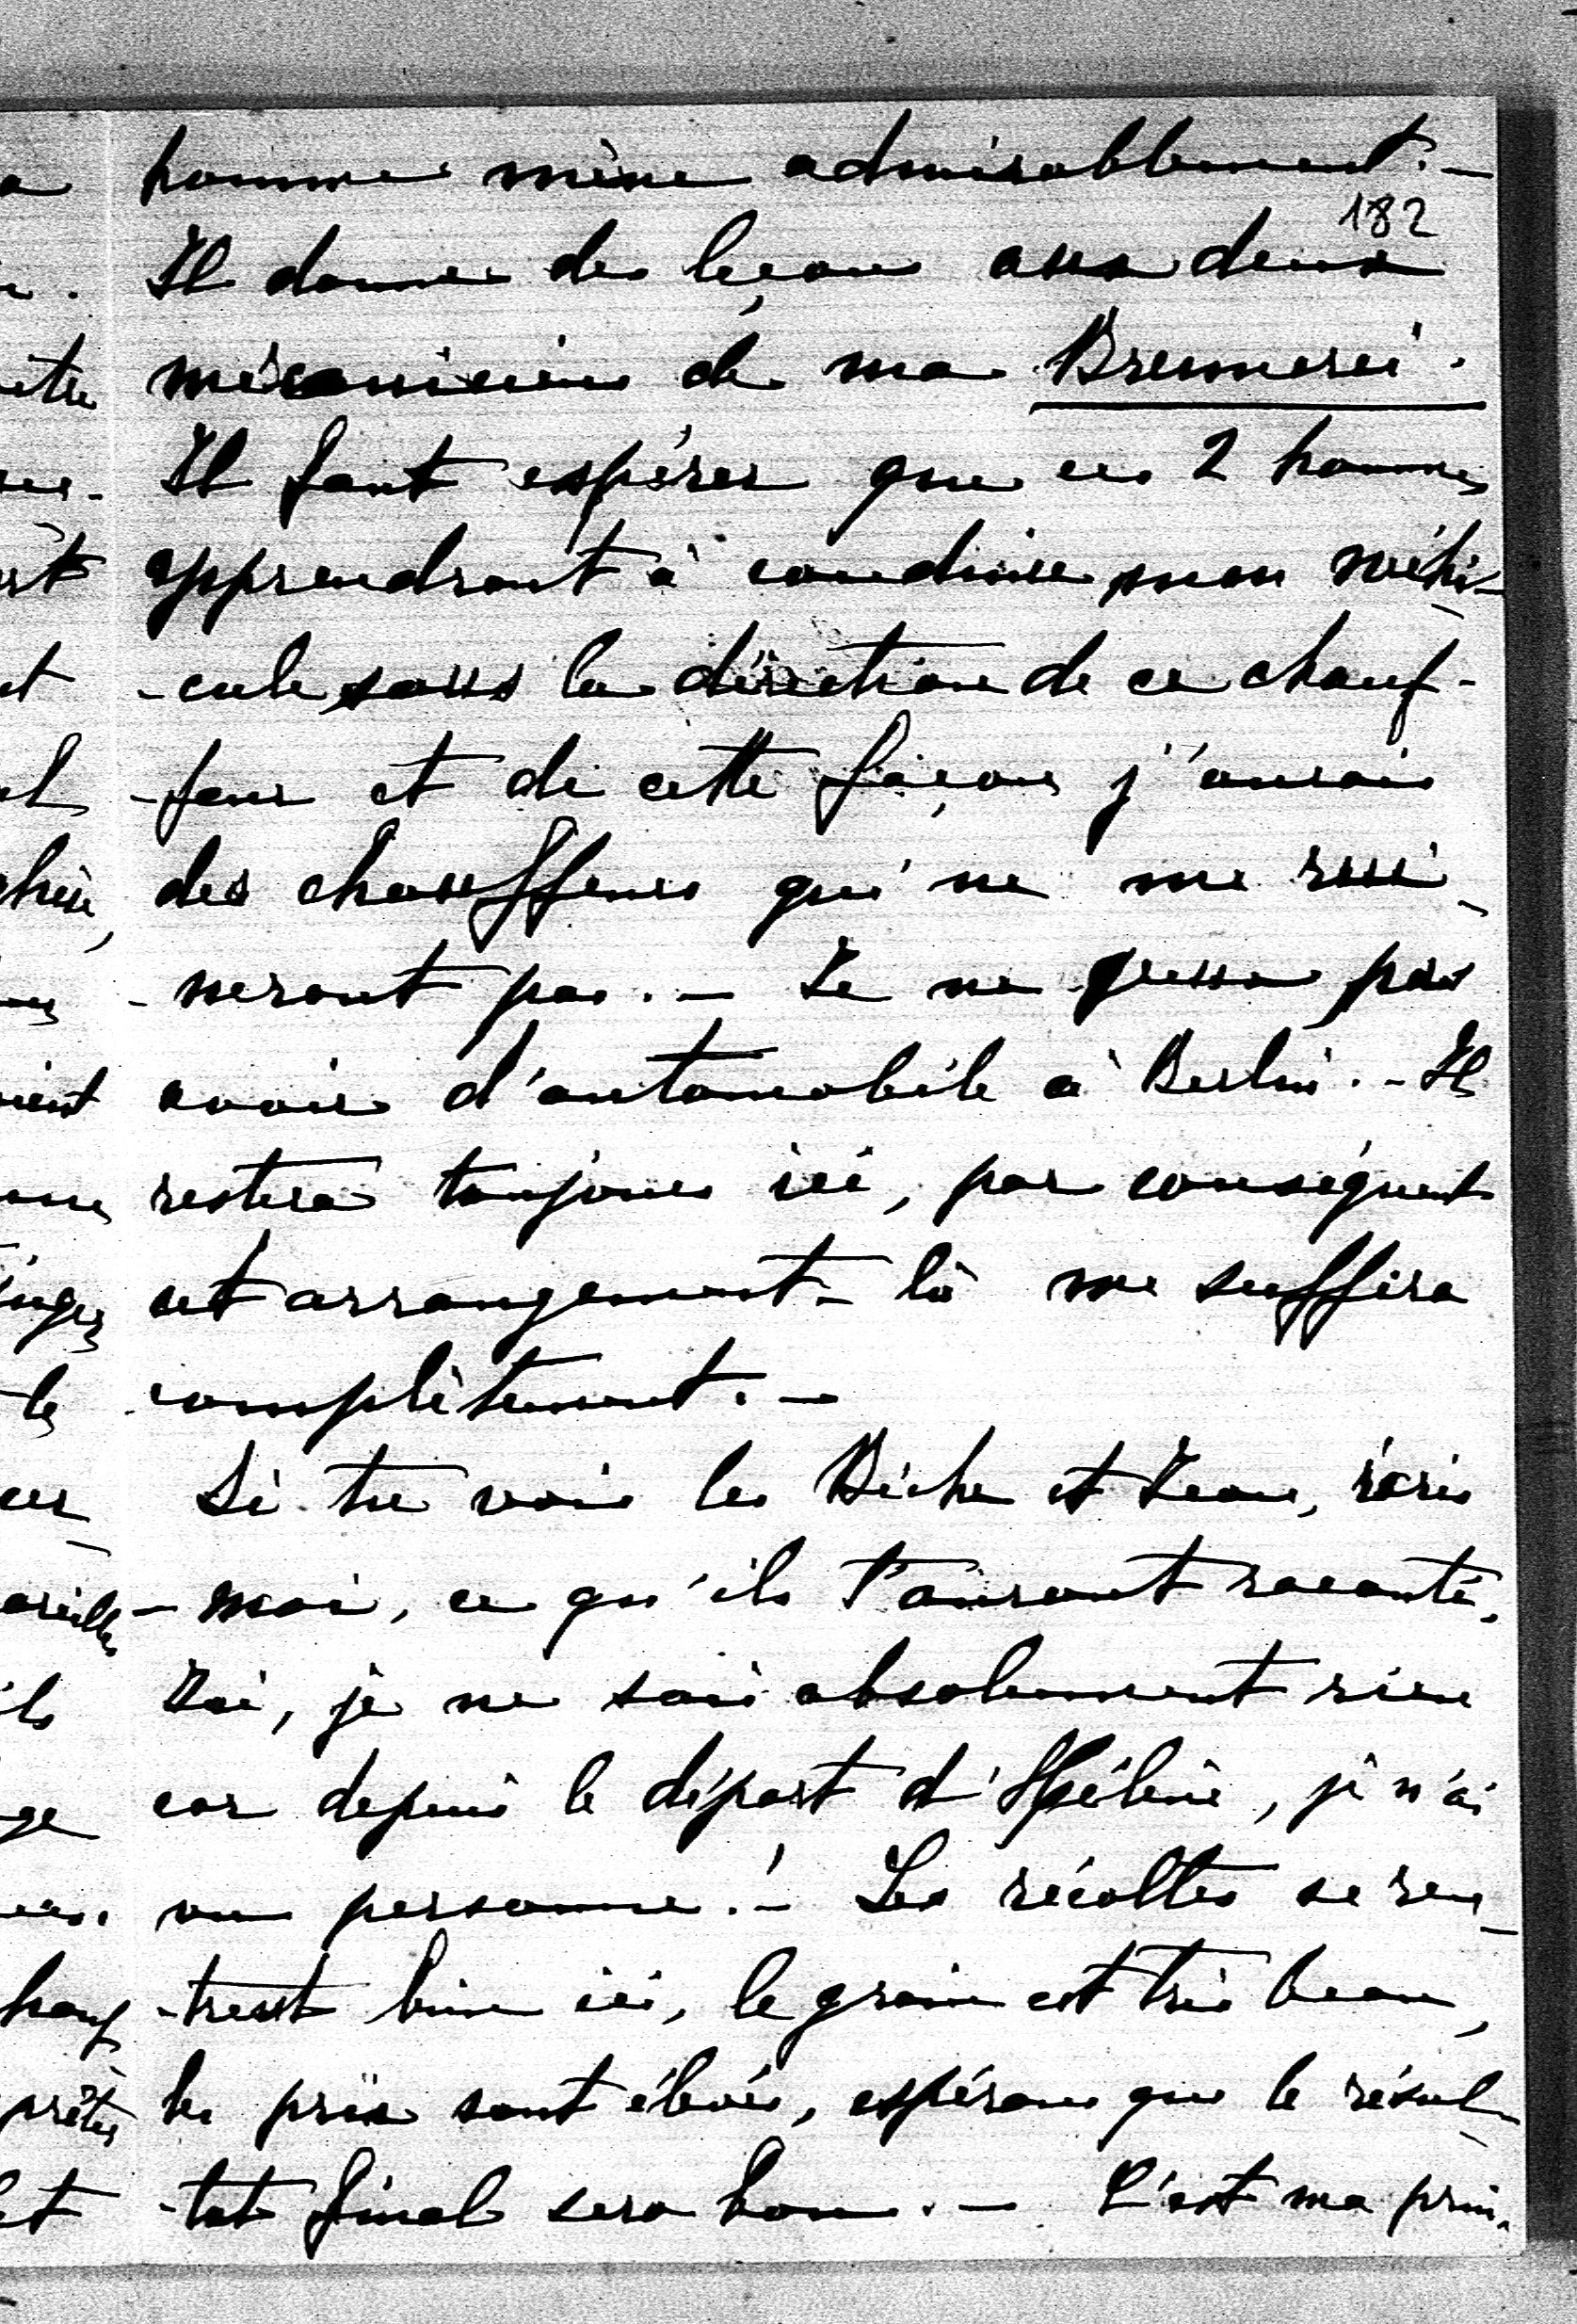 homme mène admirablement. –
182
Il donne des leçons aux deux
mécaniciens de ma Brennerei.
Il faut espérer que ces 2 hommes
apprendront à conduire mon véhi-
-cule sous la direction de ce chauf-
-feur et de cette façon j'aurais
des chauffeurs qui ne me rui-
-neront pas. – Je ne pense pas
avoir d'automobile à Berlin. – Il
restera toujours ici, par conséquent
cet arrangement-là me suffira
complètement. –
Si tu vois les Biche et Jean, écris
-moi, ce qu'ils t'auront raconté.
Ici, je ne sais absolument rien
car depuis le départ d'Hélène, je n'ai
vu personne! – Les récoltes se ren-
-trent bien ici, le grain est très beau,
les prix sont élevés, espérons que le résul-
-tat final sera bon. – C'est ma prin-